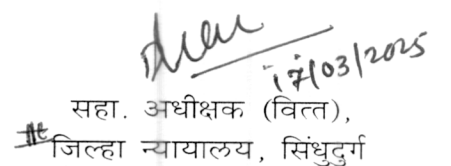 17/03/2025
सहा. अधीक्षक (वित्त),
जिल्हा न्यायालय, सिंधुदुर्ग